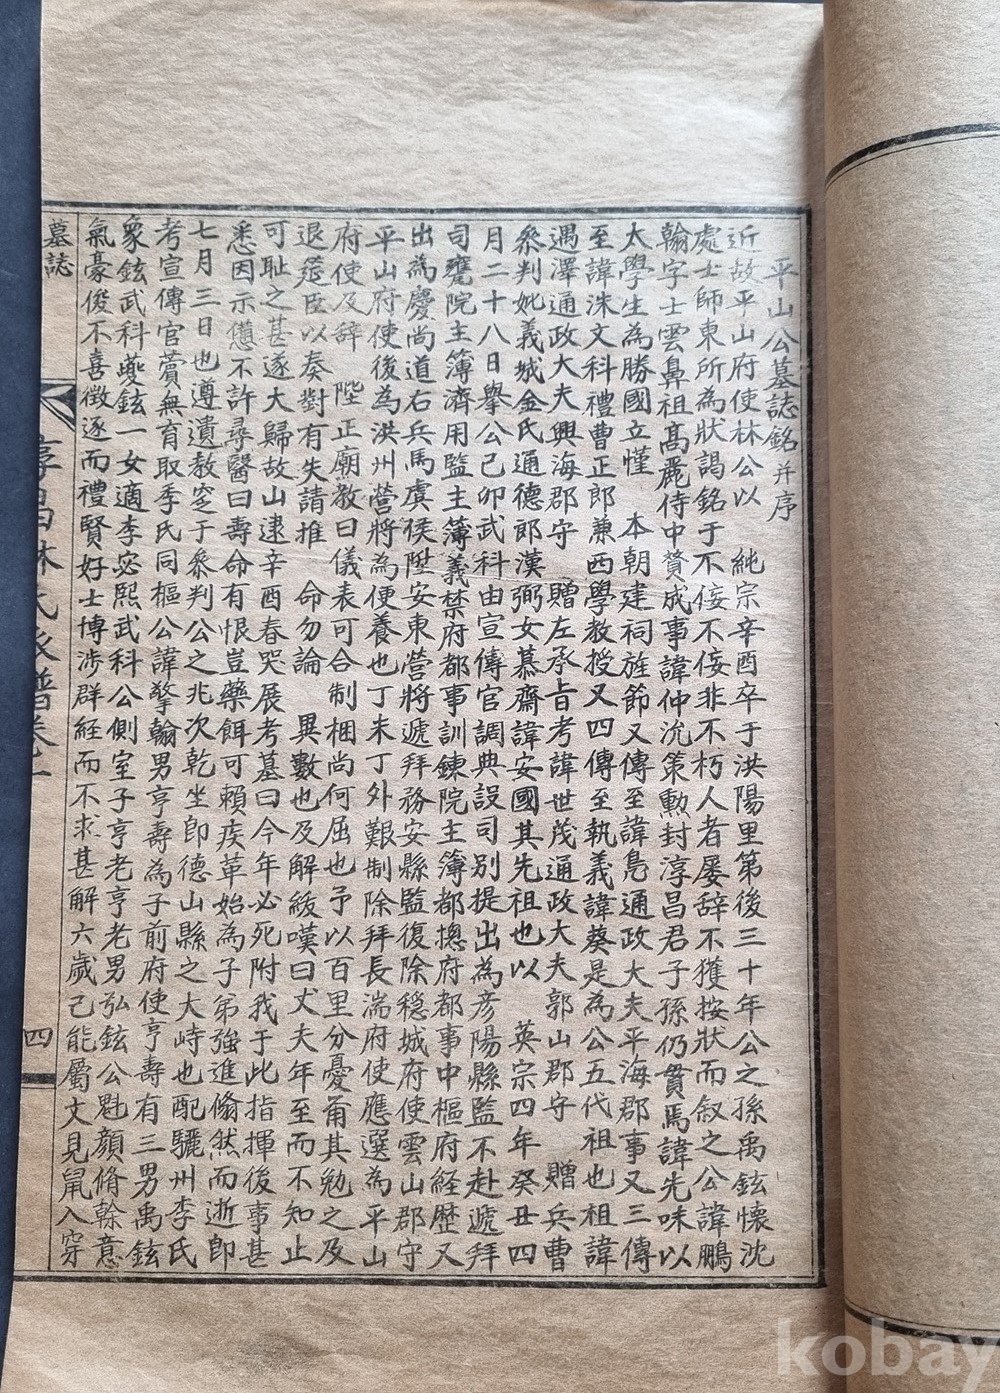 平山公墓誌銘并序
近故平山府使林公以 純宗辛酉卒于洪陽里第後三十年公之孫禹鉉懷沈
處士師東所為狀謁銘于不侫不侫非不朽人者屡辞不獲按狀而叙之公諱鵬
翰字士雲鼻祖髙麗侍中賛成事諱仲沇策勲封淳昌君子孫仍貫焉諱先味以
太學生為勝國立慬 本朝建祠旌節又傳至諱鳧通政大夫平海郡事又三傳
至諱洙文科禮曹正郎兼西學教授又四傳至執義諱葵是為公五代祖也祖諱
遇澤通政大夫興海郡守 贈左承旨考諱世茂通政大夫郭山郡守 贈兵曹
叅判妣義城金氏通德郎漢弼女慕齋諱安國其先祖也以 英宗四年癸丑四
月二十八日擧公己卯武科由宣傳官調典設司別提出為彦陽縣監不赴遞拜
司甕院主簿濟用監主簿義禁府都事訓鍊院主簿都摠府都事中樞府経歴又
出為慶尚道右兵馬虞侯陞安東營將遞拜務安縣監復除穏城府使雲山郡守
平山府使後為洪州營將為便養也丁未丁外艱制除拜長湍府使應選為平山
府使及辞 陛正廟教曰儀表可合制梱尚何屈也予以百里分憂甭其勉之及
退筵臣以奏對有失請推 命勿論 異數也及解紱嘆曰丈夫年至而不知止
可耻之甚遂大歸故山逮辛酉春哭展考墓曰今年必死附我于此指揮後事甚
悉因示憊不許尋醫曰壽命有恨豈藥餌可賴疾革始為子弟強進翛然而逝即
七月三日也遵遺教窆于叅判公之兆次乾坐即德山縣之大峙也配驪州李氏
考宣傳官蕡無育取季氏同樞公諱擎翰男亨壽為子前府使亨壽有三男禹鉉
象鉉武科夔鉉一女適李宓熙武科公側室子亨老亨老男弘鉉公魁顔脩榦意
氣豪俊不喜徴逐而禮賢好士博涉群経而不求甚解六歳己能屬文見鼠入穿
墓誌
淳昌林氏派譜卷一
四
kobay